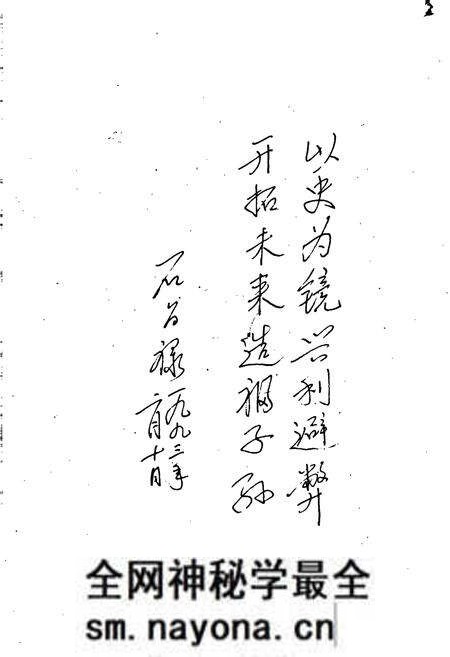 以史为镜兴利避弊
开拓未来造福子孙
石 禄
一九九三年
月十日
全网神秘学最全
sm.nayona.cn